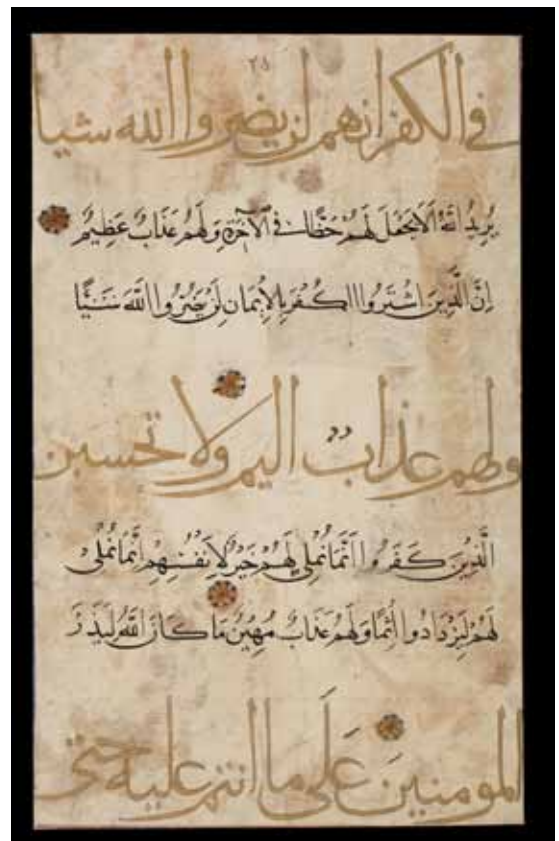 ٢٨
في الكفر انهم لن يضروا الله شيا
يُرِيدُ اللهُ أَلَّا يَجْعَلَ لَهُمْ حَظًّا فِي الْآخِرَةِ وَلَهُمْ عَذَابٌ عَظِيمٌ
إِنَّ الَّذِينَ اشْتَرَوُا الكُفْرَ بِالْإِيمَانِ لَنْ يَضُرُّوا اللَّهَ شَيْئًا
ولهم عذاب اليم ولا تحسبن
الَّذِينَ كَفَرُوا أَنَّمَا نُمْلِي لَهُمْ خَيْرٌ لِأَنفُسِهِمْ إِنَّمَا نُمْلِي
لَهُمْ لِيَزْدَادُوا إِثْمًا وَلَهُمْ عَذَابٌ مُهِينٌ مَا كَانَ اللَّهُ لِيَذَرَ
المومنين عَلَى ما انتم عليه حتى